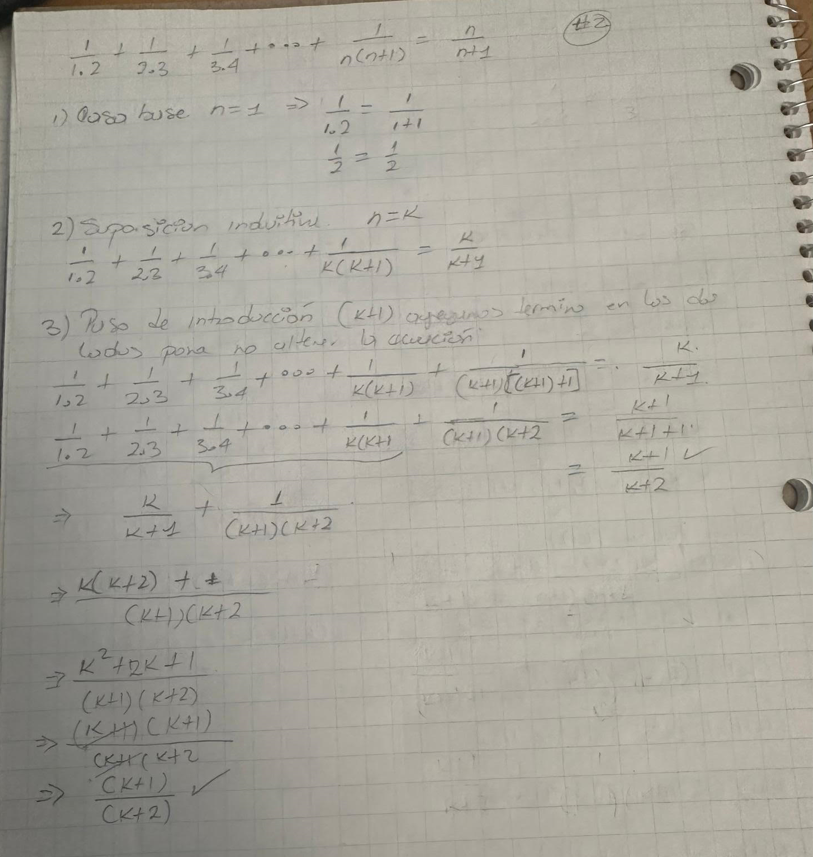 #2
1/1.2 + 1/2.3 + 1/3.4 + ... + 1/n(n+1) = n/n+1
1) Caso base n=1 => 1/1.2 = 1/1+1
1/2 = 1/2
2) Suposición n=K
1/1.2 + 1/2.3 + 1/3.4 + ... + 1/K(K+1) = K/K+1
3) Paso de introducción (K+1) termino en los dos
lados para no alterar la
1/1.2 + 1/2.3 + 1/3.4 + ... + 1/K(K+1) + 1/(K+1)[(K+1)+1] = K/K+1
1/1.2 + 1/2.3 + 1/3.4 + ... + 1/K(K+1 + 1/(K+1)(K+2 = K+1/K+1+1
= K+1/K+2 ✓
=> K/K+1 + 1/(K+1)(K+2
=> K(K+2) + 1/(K+1)(K+2
=> K²+2K+1/(K+1)(K+2)
=> (K+1)(K+1)/(K+1(K+2
=> (K+1)/(K+2) ✓